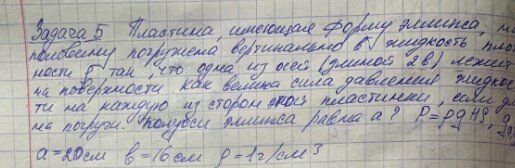 Задача 5 Пластина, имеющая форму эллипса, на
половину погружена вертикально в жидкость плот
ности ρ так, что одна из осей (длиной 2в) лежит
на поверхности. Как велика сила давления жидкос
ти на каждую из сторон этой пластинки, если дли
на погруж. полуоси эллипса равна а? P=ρgHS,
a=20см в=16см ρ=1г/см³